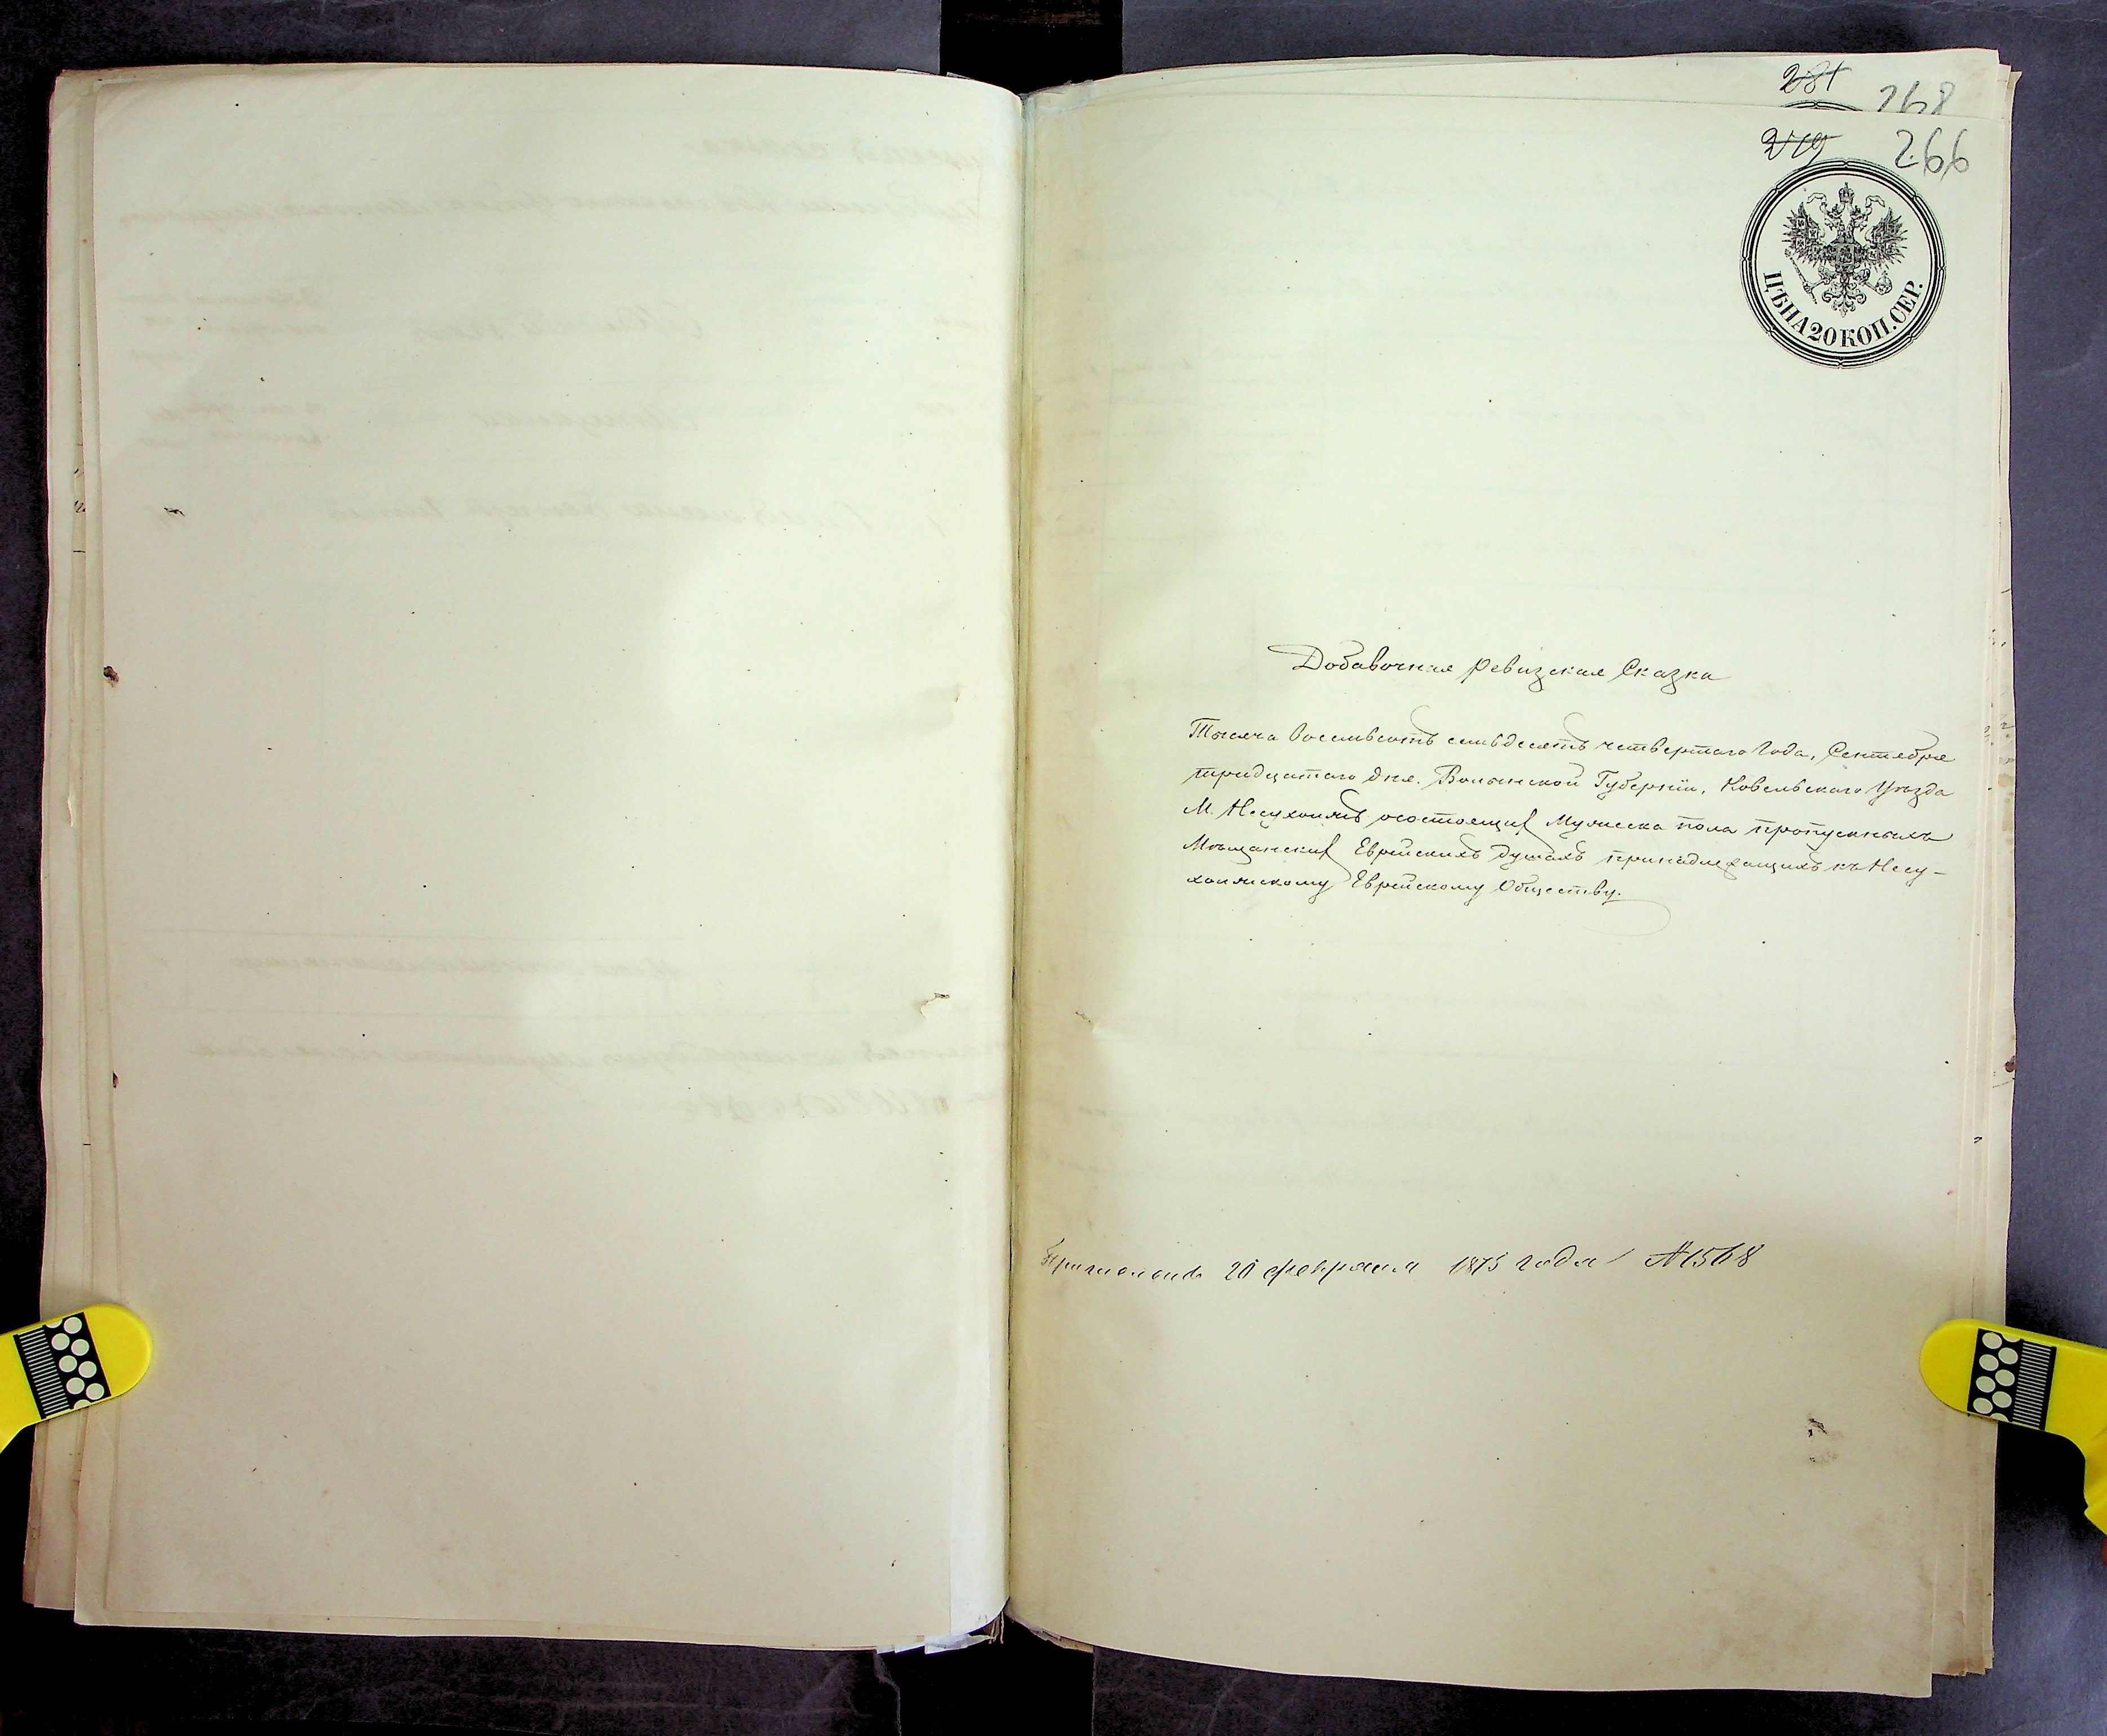 281
268
279
266
ЦѢНА 20 КОП. СЕР.
Добавочная ревизская Сказка
Тысяча восемьсотъ семьдесятъ четвертаго Года, Сентября
тридцатаго дня. Волынской Губерніи, Ковельскаго Уѣзда
М. Несухоижъ осостоящих Мужеска пола пропускныхъ
Мѣщанских Еврейскихъ душахъ принадлежащихъ къ Несу-
хоижскому Еврейскому Обществу.
20 февраля 1875 года № 1568